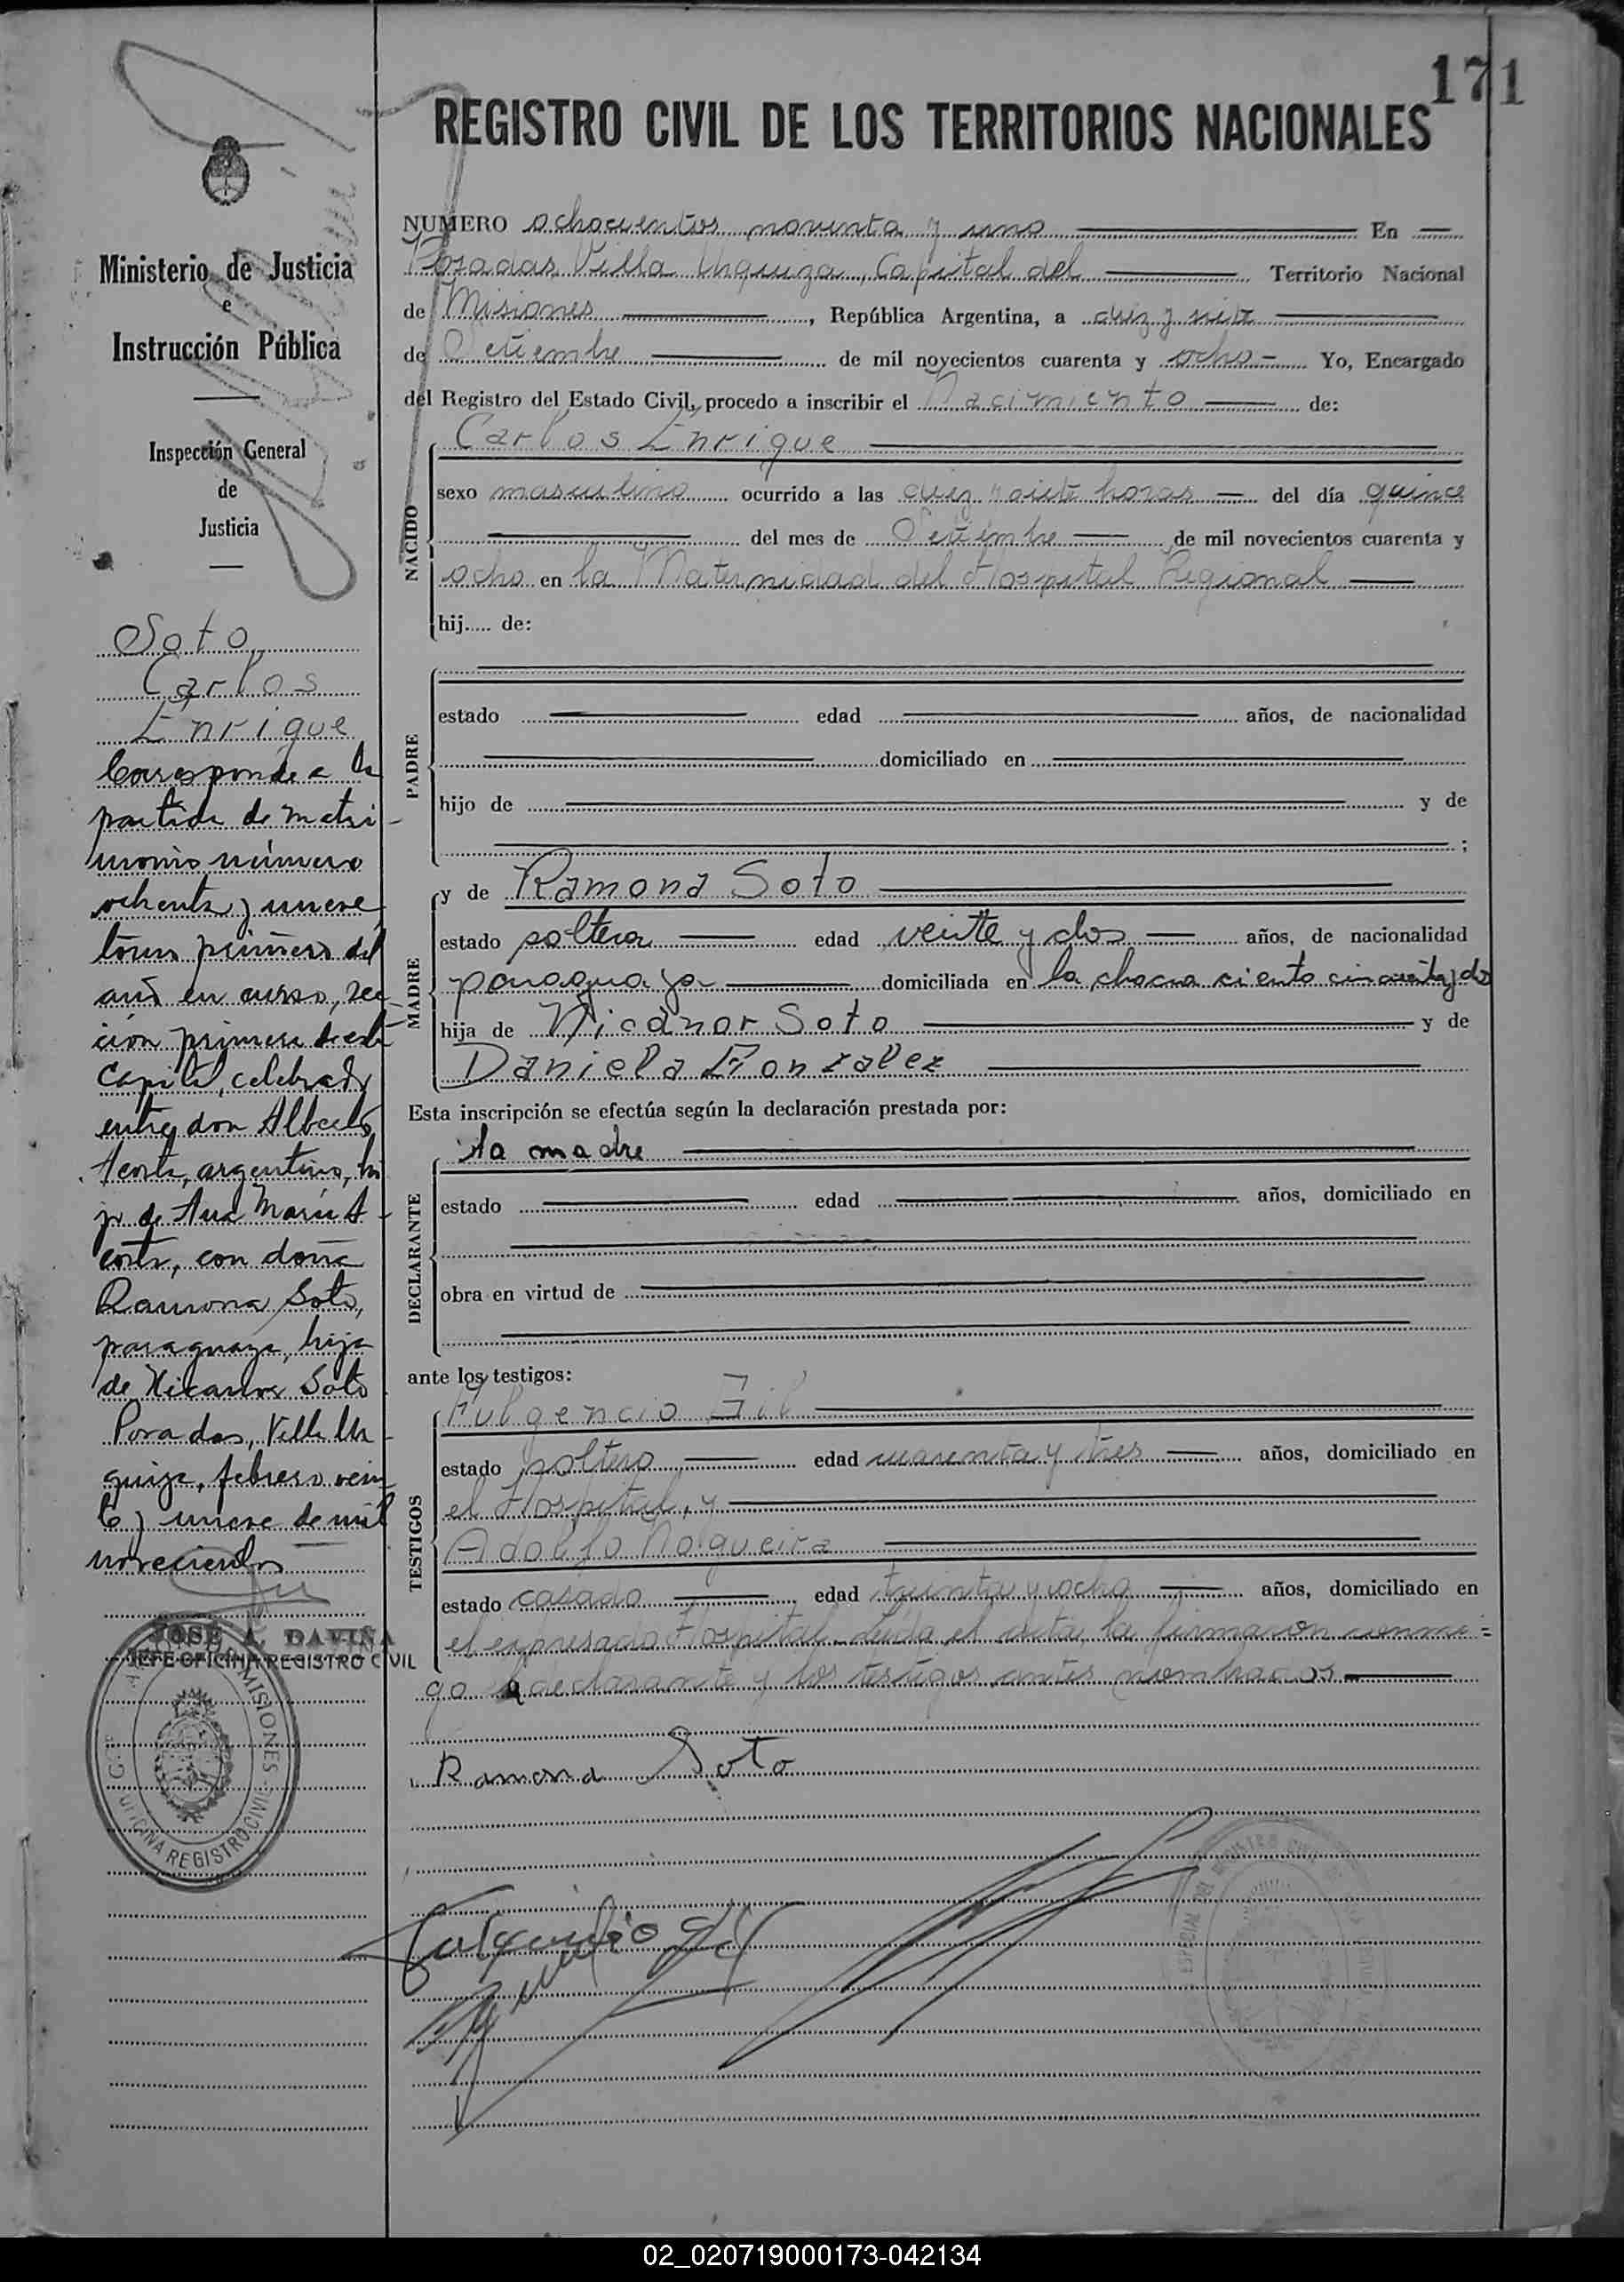 171
REGISTRO CIVIL DE LOS TERRITORIOS NACIONALES
Ministerio de Justicia
e
Instrucción Pública
Inspección General
de
Justicia
Soto
Carlos
Enrique
Corresponde a la
partida de matri-
monio número
ochenta y nueve
tomo primero del
año en curso, sec-
ción primera de esta
Capital, celebrado
entre don Alberto
Acosta, argentino, hi-
jo de Ana María A-
costa, con doña
Ramona Soto,
paraguaya, hija
de Nicanor Soto
Posadas, Villa Ur-
quiza, febrero vein-
te y nueve de mil
novecientos
JOSE A. DAVIÑA
JEFE OFICINA REGISTRO CIVIL
MISIONES
OFICINA REGISTRO CIVIL
NUMERO ochocientos noventa y uno En
Posadas, Villa Urquiza, Capital del Territorio Nacional
de Misiones, República Argentina, a diez y siete
de Setiembre de mil novecientos cuarenta y ocho Yo, Encargado
del Registro del Estado Civil, procedo a inscribir el Nacimiento de:
NACIDO
Carlos Enrique
sexo masculino ocurrido a las diez y siete horas del día quince
del mes de Setiembre de mil novecientos cuarenta y
ocho en la Maternidad del Hospital Regional
hij..... de:
PADRE
estado edad años, de nacionalidad
domiciliado en
hijo de y de
;
MADRE
y de Ramona Soto
estado soltera edad veinte y dos años, de nacionalidad
paraguaya domiciliada en la chacra ciento cincuenta y dos
hija de Nicanor Soto y de
Daniela Gonzalez
Esta inscripción se efectúa según la declaración prestada por:
DECLARANTE
la madre
estado edad años, domiciliado en
obra en virtud de
ante los testigos:
TESTIGOS
Fulgencio Gil
estado soltero edad cuarenta y tres años, domiciliado en
el Hospital, y
Adolfo Nolgueira
estado casado edad treinta y ocho años, domiciliado en
el expresado Hospital. Leída el acta, la firmaron conmi=
go la declarante y los testigos antes nombrados
Ramona Soto
Fulgencio Gil
02_020719000173-042134